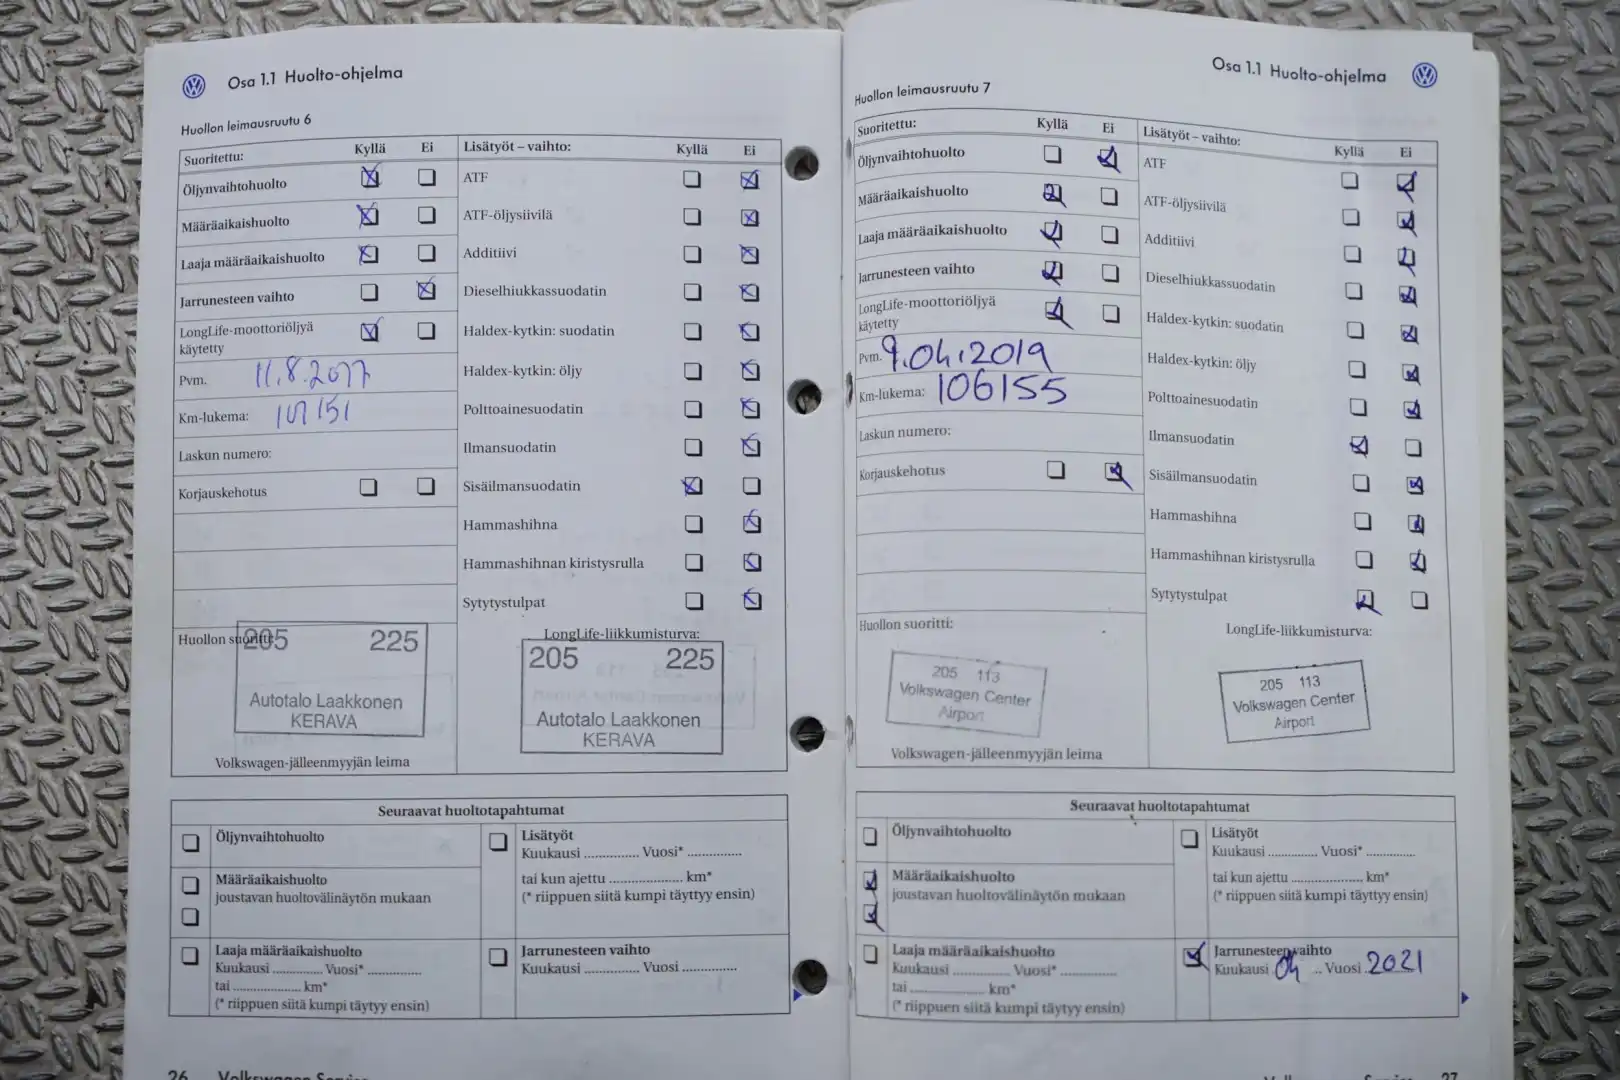 Osa 1.1 Huolto-ohjelma
Huollon leimausruutu 6
Suoritettu: Kyllä Ei
Öljynvaihtohuolto
Määräaikaishuolto
Laaja määräaikaishuolto
Jarrunesteen vaihto
LongLife-moottoriöljyä
käytetty
Pvm. 11.8.2017
Km-lukema:
Laskun numero:
Korjauskehotus
Lisätyöt – vaihto: Kyllä Ei
ATF
ATF-öljysiivilä
Additiivi
Dieselhiukkassuodatin
Haldex-kytkin: suodatin
Haldex-kytkin: öljy
Polttoainesuodatin
Ilmansuodatin
Sisäilmansuodatin
Hammashihna
Hammashihnan kiristysrulla
Sytytystulpat
Huollon suoritti:
205 225
Autotalo Laakkonen
KERAVA
Volkswagen-jälleenmyyjän leima
LongLife-liikkumisturva:
205 225
Autotalo Laakkonen
KERAVA
Seuraavat huoltotapahtumat
Öljynvaihtohuolto
Määräaikaishuolto
joustavan huoltovälinäytön mukaan
Laaja määräaikaishuolto
Kuukausi .............. Vuosi* ..............
tai ..................... km*
(* riippuen siitä kumpi täytyy ensin)
Lisätyöt
Kuukausi .............. Vuosi* ..............
tai kun ajettu ................... km*
(* riippuen siitä kumpi täyttyy ensin)
Jarrunesteen vaihto
Kuukausi .............. Vuosi ..............
26 Volkswagen Service
Osa 1.1 Huolto-ohjelma
Huollon leimausruutu 7
Suoritettu: Kyllä Ei
Öljynvaihtohuolto
Määräaikaishuolto
Laaja määräaikaishuolto
Jarrunesteen vaihto
LongLife-moottoriöljyä
käytetty
Pvm. 9.04.2019
Km-lukema: 106155
Laskun numero:
Korjauskehotus
Lisätyöt – vaihto: Kyllä Ei
ATF
ATF-öljysiivilä
Additiivi
Dieselhiukkassuodatin
Haldex-kytkin: suodatin
Haldex-kytkin: öljy
Polttoainesuodatin
Ilmansuodatin
Sisäilmansuodatin
Hammashihna
Hammashihnan kiristysrulla
Sytytystulpat
Huollon suoritti:
205 113
Volkswagen Center
Airport
Volkswagen-jälleenmyyjän leima
LongLife-liikkumisturva:
205 113
Volkswagen Center
Airport
Seuraavat huoltotapahtumat
Öljynvaihtohuolto
Määräaikaishuolto
joustavan huoltovälinäytön mukaan
Laaja määräaikaishuolto
Kuukausi .............. Vuosi* ..............
tai ..................... km*
(* riippuen siitä kumpi täyttyy ensin)
Lisätyöt
Kuukausi .............. Vuosi* ..............
tai kun ajettu ................... km*
(* riippuen siitä kumpi täyttyy ensin)
Jarrunesteen vaihto
Kuukausi 04 .. Vuosi 2021
27